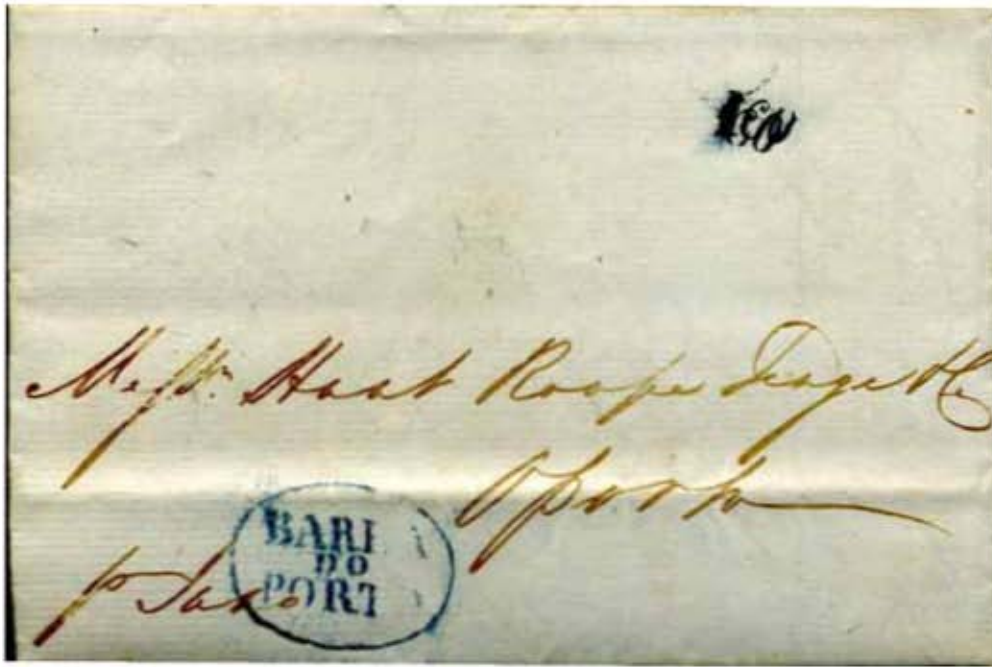 Messrs. Hunt Roope Teage & Co
Oporto
BARR
DO
PORT
p